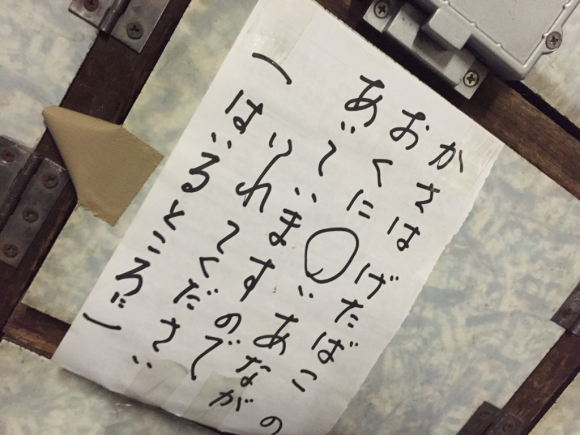 かさは げたばこの
おくに ◯い あなが
あいていますので
いれてください
(はいるところに)